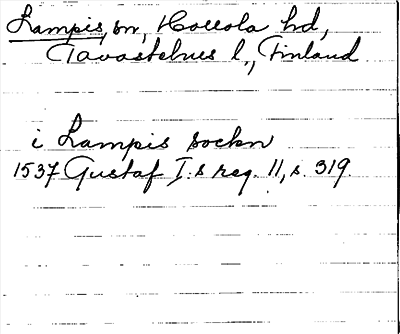 Lampis, sn, Hollola hd,
Tavastehus l., Finland
i Lampis socken
1537 Gustaf I:s reg. 11, s. 319.